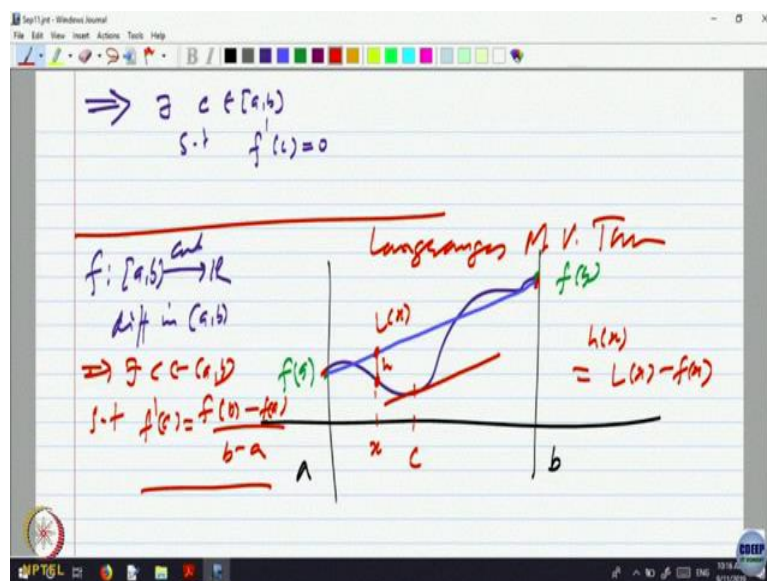 Sep11.jnt - Windows Journal
File Edit View Insert Actions Tools Help
B I
⇒ ∃ c ∈ [a,b)
s.t f'(c) = 0
Langranges M. V. Thm
f: [a,b] cont→ IR
diff in (a,b)
⇒ ∃ c ∈ (a,b)
s.t f'(c) = f(b) - f(a)
b - a
f(a)
L(x)
h
f(b)
h(x)
= L(x) - f(x)
x c
a b
NPTEL
CDEEP
ENG